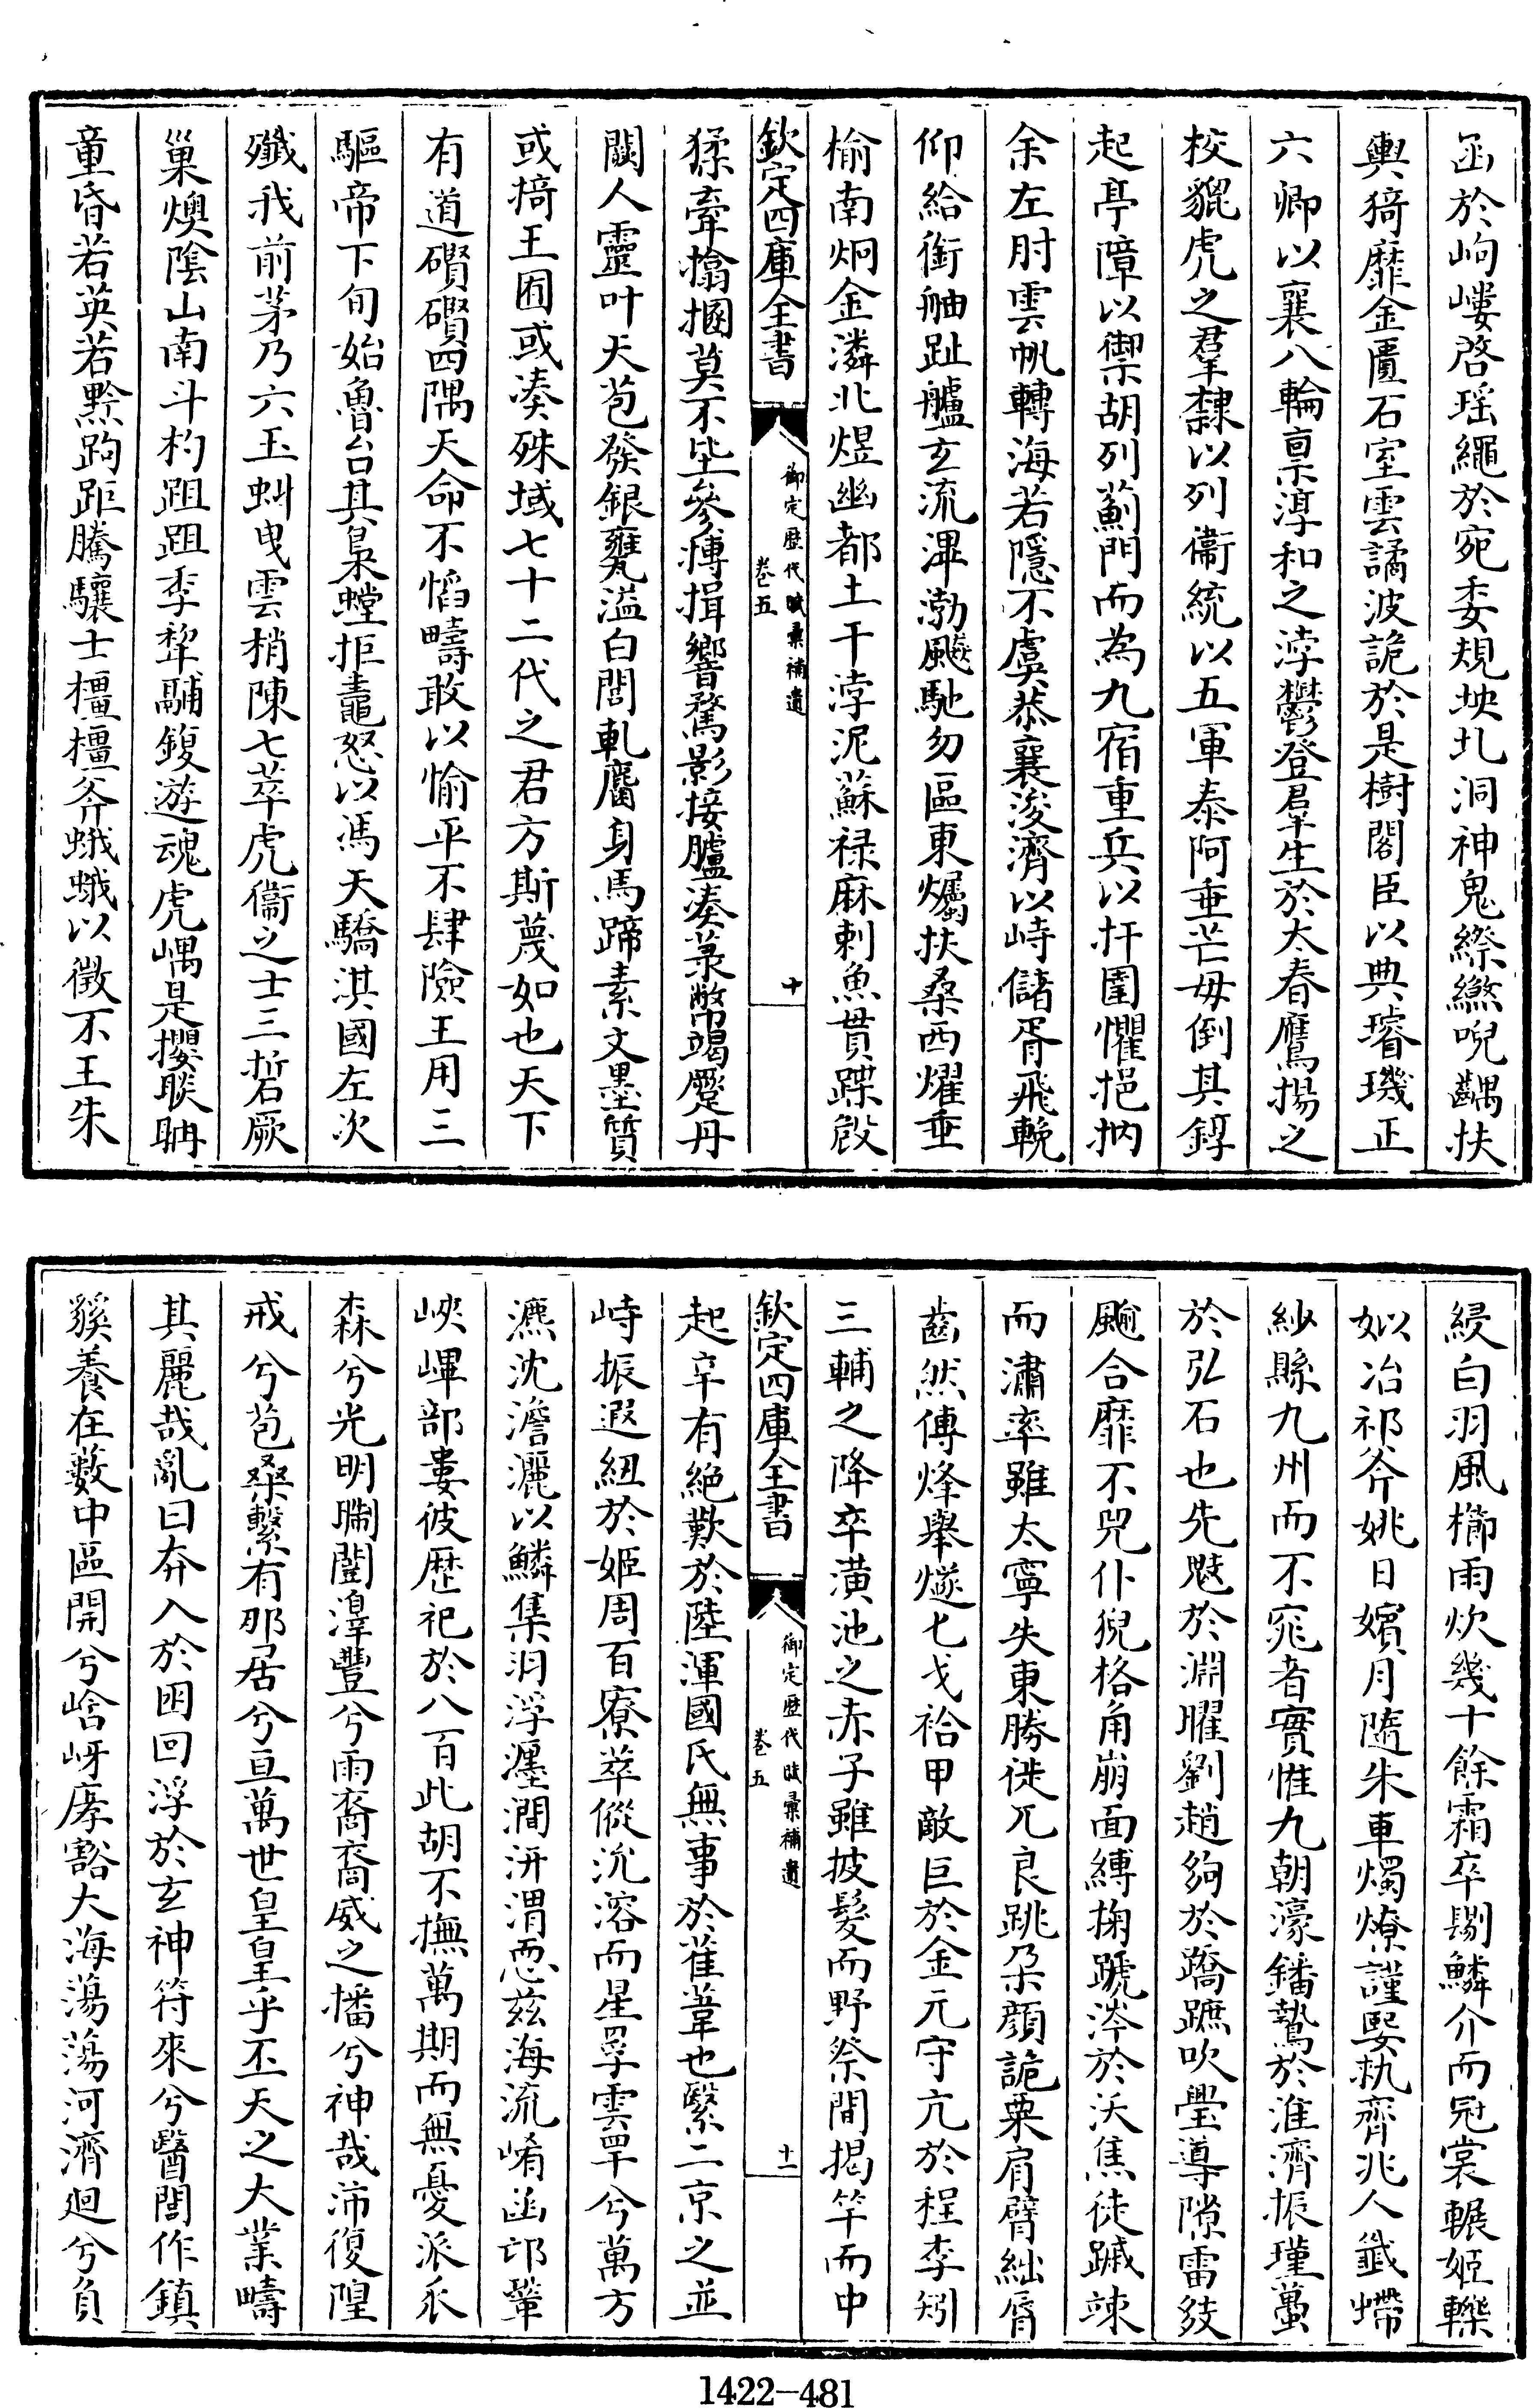 函於岣嶁啓瑶繩於宛委規坱圠洞神鬼縩繺唲齵扶
輿猗靡金匱石室雲譎波詭於是樹閣臣以典璿璣正
六卿以襄八輪稟淳和之浡鬱登羣生於太春鷹揚之
校貔虎之羣隸以列衞統以五軍泰阿垂芒毋倒其錞
起亭障以禦胡列薊門而為九宿重兵以扞圉懼挹抐
余左肘雲帆轉海若隱不虞恭襄浚濟以峙儲胥飛輓
仰給銜舳趾艫玄流渒渤颷馳勿區東爥扶桑西燿垂
榆南炯金潾北煜幽都土干浡泥蘇禄麻剌魚貫蹀㱾
欽定四庫全書
御定歴代賦彙補遺
卷五
十
猱牽擒摑莫不坒參摶揖響騖影接臚湊菉幣竭蹷丹
闕人靈叶天苞發銀甕溢白閭軋麕身馬蹄素文墨質
或掎王囿或湊殊域七十二代之君方斯蔑如也天下
有道礩礩四隅天命不慆疇敢以愉平不肆險王用三
驅帝下旬始魯台其梟螳拒鼃怒以馮天驕淇國左次
殲我前茅乃六玉虯曳雲梢陳七萃虎衞之士三晢厥
巢燠陰山南斗杓跙跙李犂鬴鍑遊魂虎嵎是攖聝聃
童昏若英若黥跔距騰驤士橿橿斧蛾蛾以徵不王朱
綅白羽風櫛雨炊幾十餘霜卒剔鱗介而冠裳輾姬轢
姒冶祁斧姚日嬪月隨朱車燭燎謹娶執齊兆人鑯㿃
紗縣九州而不窕者實惟九朝濠鐇鷙於淮濟振瑾蠆
於弘石也先魃於淵曜劉趙夠於蹻蹠吹璺導隙雷皴
颴合靡不兕仆猊格角崩面縛掬踱涔於沃焦徒躋竦
而潚率雖太寧失東勝徙兀良跳朶顔詭粟肩臂絀脣
齒然傳烽舉燧七戈袷甲敵巨於金元守亢於程李矧
三輔之降卒潢池之赤子雖披髮而野祭間揭竿而中
欽定四庫全書
御定歴代賦彙補遺
卷五
十一
起辛有絶歎於陸渾國氏無事於雈葦也繄二京之並
峙振遐紐於姬周百寮萃傱沇溶而星罘雲罕兮萬方
瀌沈澹灑以鱗集羽浮瀍澗汧渭惡兹海流崤函邙鞏
峽㟦部婁彼歴祀於八百此胡不撫萬期而無憂派𠂢
森兮光明矊閶淳豐兮雨裔裔威之播兮神哉沛復隍
戒兮苞桑繫有那居兮亘萬世皇皇乎丕天之大業疇
其麗哉亂曰夲入於囦回浮於玄神符來兮醫閭作鎮
豯養在藪中區開兮峆岈庨豁大海蕩蕩河濟迴兮負
1422-481